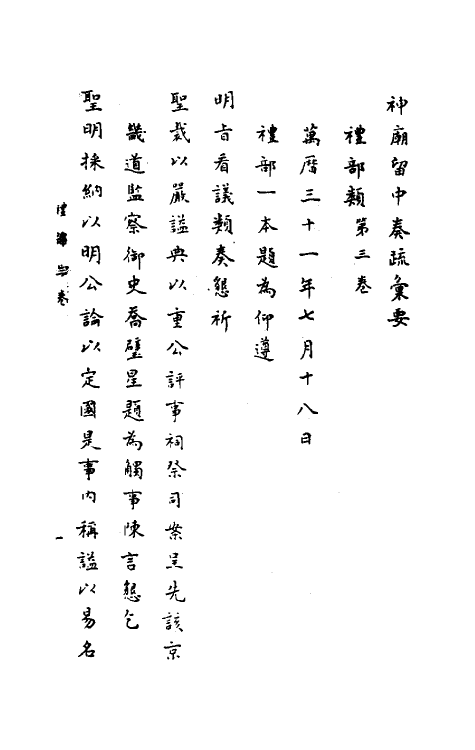 神廟留中奏疏彙要
禮部類第三卷
萬曆三十一年七月十八日
禮部一本題為仰遵
明旨看議類奏懇祈
聖裁以嚴謚典以重公評事祠祭司案呈先該京
畿道監察御史喬璧星題為觸事陳言懇乞
聖明採納以明公論以定國是事內稱謚以易名
禮部 卷
一